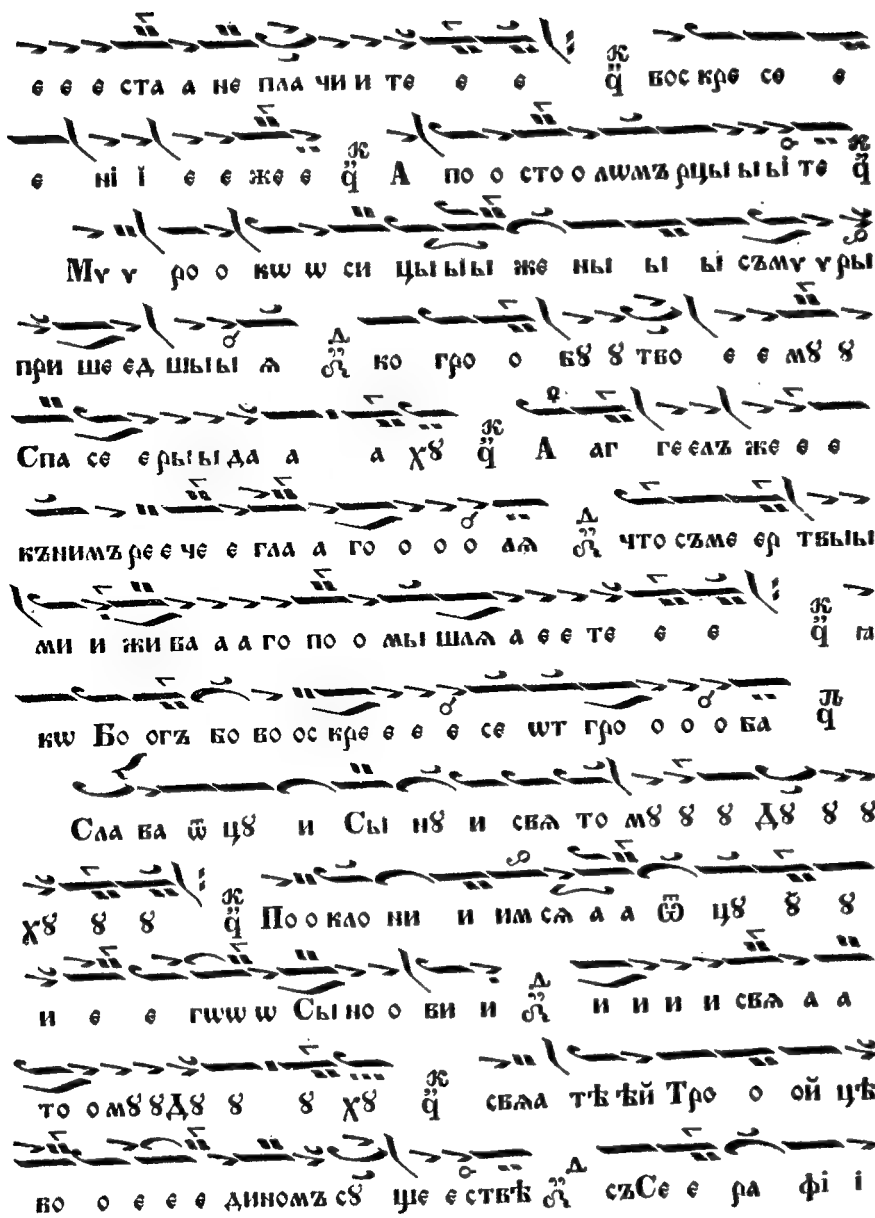 є є є ста а не пла чи и те є є воскре се є
є нї ї є є же є А по о сто о лѡмъ рцы ы ы те
Мѵ ѵ ро о кѡ ѡ си цы ы ы же ны ы ы съмѵ ѵ ры
при ше єд шы ы ѧ ко гро о бꙋ ꙋ тво є є мꙋ ꙋ
Спа се є ры ы да а а хꙋ А аг ге єлъ же є є
кънимъ ре є че є гла а го о о о лѧ что съме єр твы ы
ми и жи ва а а го по о мы шлѧ а є є те є є ꙗ
кѡ Бо огъ во во ос кре є є є се ѡт гро о о о ба
Сла ва ѿ цꙋ и Сы нꙋ и свѧ то мꙋ ꙋ ꙋ Дꙋ ꙋ ꙋ
хꙋ ꙋ ꙋ По о кло ни и им сѧ а а Ѿ цꙋ ꙋ ꙋ
и є є гѡ ѡ ѡ Сы но о ви и и и и и свѧ а а
то о мꙋ ꙋ Дꙋ ꙋ ꙋ хꙋ свѧа тѣ ѣй Тро о ой цѣ
во о є є є диномъ сꙋ ще є ствѣ съСе є ра фї ї